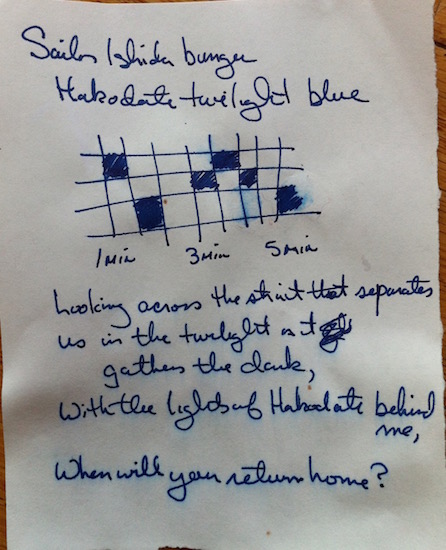 Sailor Ishida bungu
Hakodate twilight blue
1 min 3 min 5 min
Looking across the strait that separates
us in the twilight as it
gathers the dark,
With the lights of Hakodate behind
me,
When will you return home?